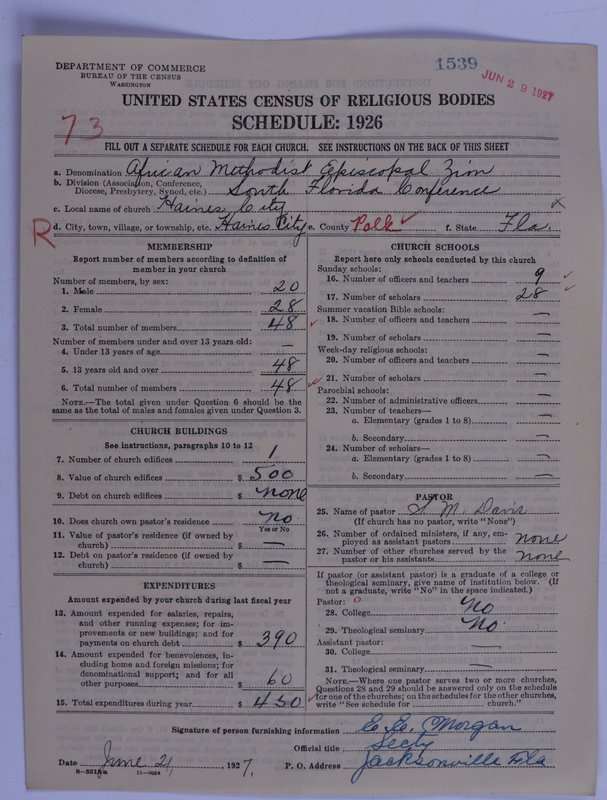 1539
JUN 29 1927
DEPARTMENT OF COMMERCE
BUREAU OF THE CENSUS
WASHINGTON
UNITED STATES CENSUS OF RELIGIOUS BODIES
SCHEDULE: 1926
73
FILL OUT A SEPARATE SCHEDULE FOR EACH CHURCH. SEE INSTRUCTIONS ON THE BACK OF THIS SHEET
a. Denomination African Methodist Episcopal Zion
b. Division (Association, Conference, Diocese, Presbytery, Synod, etc.) South Florida Conference
c. Local name of church Haines City
R
d. City, town, village, or township, etc. Haines City e. County Polk f. State Fla.
MEMBERSHIP
Report number of members according to definition of
member in your church
Number of members, by sex:
1. Male 20
2. Female 28
3. Total number of members 48
Number of members under and over 13 years old:
4. Under 13 years of age —
5. 13 years old and over 48
6. Total number of members 48
NOTE.—The total given under Question 6 should be the
same as the total of males and females given under Question 3.
CHURCH BUILDINGS
See instructions, paragraphs 10 to 12
7. Number of church edifices 1
8. Value of church edifices $ 500
9. Debt on church edifices $ none
10. Does church own pastor's residence no
Yes or No
11. Value of pastor's residence (if owned by
church) $ —
12. Debt on pastor's residence (if owned by
church) $ —
EXPENDITURES
Amount expended by your church during last fiscal year
13. Amount expended for salaries, repairs,
and other running expenses; for im-
provements or new buildings; and for
payments on church debt $ 390
14. Amount expended for benevolences, in-
cluding home and foreign missions; for
denominational support; and for all
other purposes $ 60
15. Total expenditures during year $ 450
CHURCH SCHOOLS
Report here only schools conducted by this church
Sunday schools:
16. Number of officers and teachers 9
17. Number of scholars 28
Summer vacation Bible schools:
18. Number of officers and teachers —
19. Number of scholars —
Week-day religious schools:
20. Number of officers and teachers —
21. Number of scholars —
Parochial schools:
22. Number of administrative officers —
23. Number of teachers—
a. Elementary (grades 1 to 8) —
b. Secondary —
24. Number of scholars—
a. Elementary (grades 1 to 8) —
b. Secondary —
PASTOR
25. Name of pastor S. M. Davis
(If church has no pastor, write "None")
26. Number of ordained ministers, if any, em-
ployed as assistant pastors none
27. Number of other churches served by the
pastor or his assistants none
If pastor (or assistant pastor) is a graduate of a college or
theological seminary, give name of institution below. (If
not a graduate, write "No" in the space indicated.)
Pastor:
28. College No
29. Theological seminary No
Assistant pastor:
30. College —
31. Theological seminary —
NOTE.—Where one pastor serves two or more churches,
Questions 28 and 29 should be answered only on the schedule
for one of the churches; on the schedules for the other churches,
write "See schedule for church."
Signature of person furnishing information E. E. Morgan
Official title Secty
Date June 21, 1927. P. O. Address Jacksonville Fla